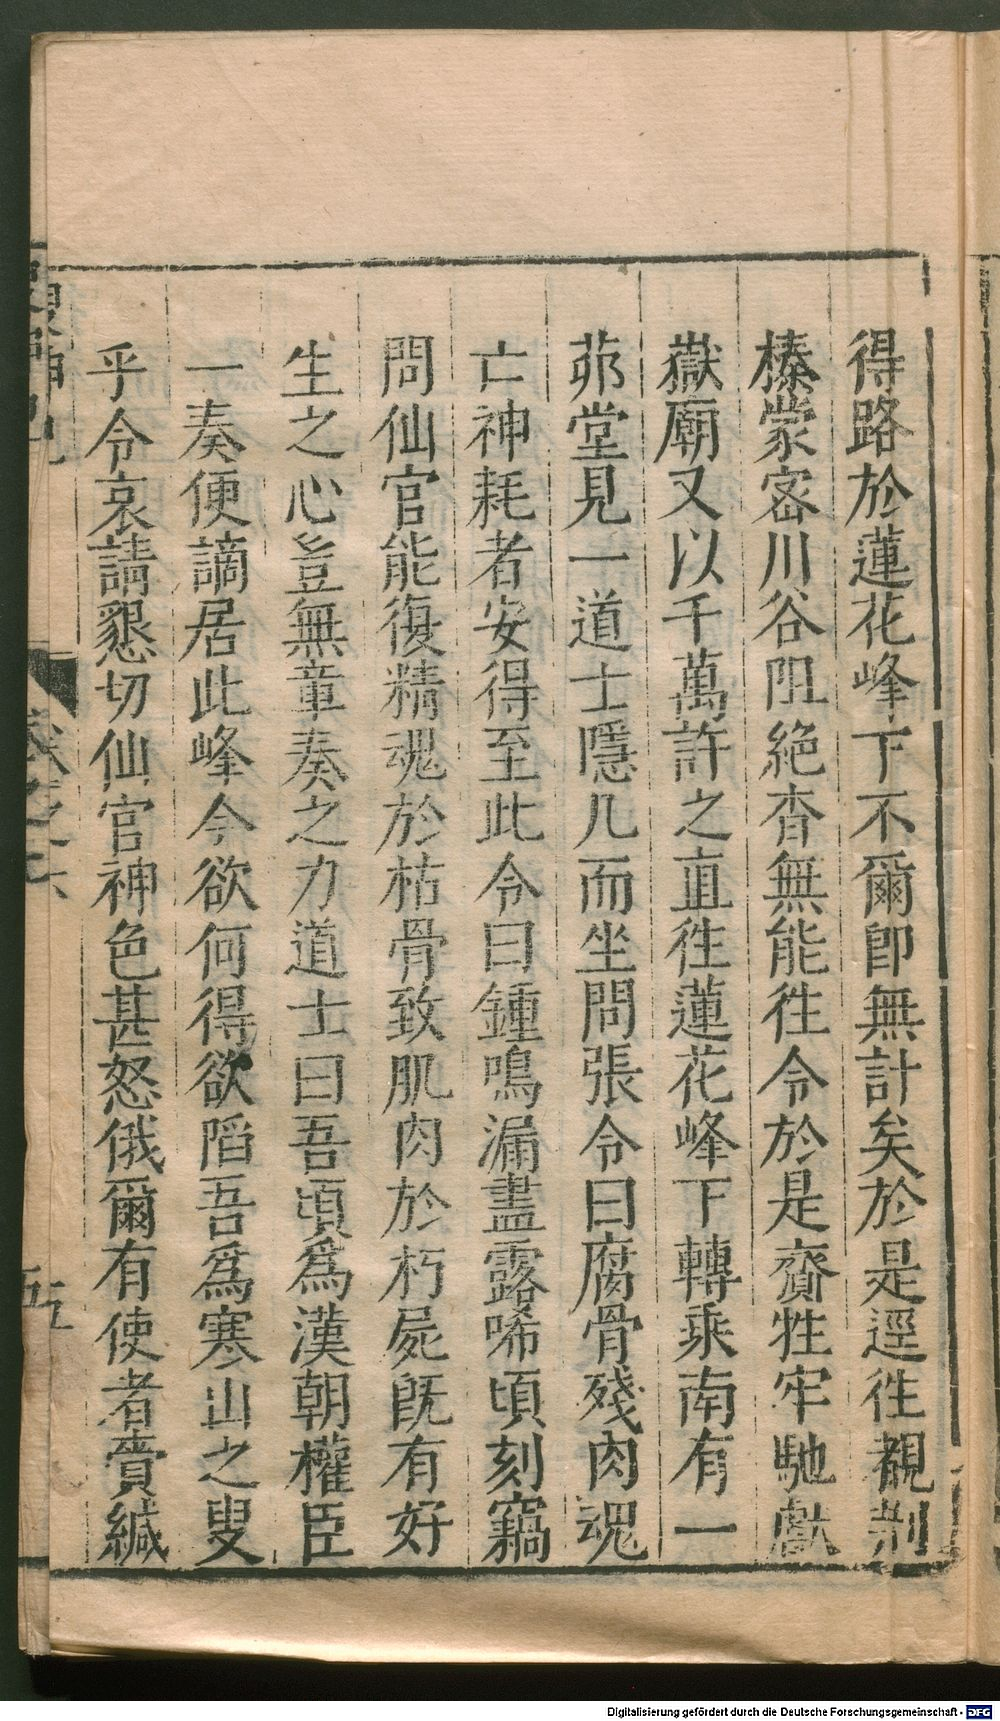 得路於蓮花峰下不爾卽無計矣於是逕徃覩荆
榛蒙密川谷阻絶杳無能徃令於是齎牲牢馳獻
嶽廟又以千萬許之直徃蓮花峰下轉乘南有一
茆堂見一道士隱几而坐問張令曰腐骨殘肉魂
亡神耗者安得至此令曰鍾鳴漏盡露唏頃刻竊
問仙官能復精魂於枯骨致肌肉於朽屍旣有好
生之心豈無章奏之力道士曰吾頃爲漢朝權臣
一奏便謫居此峰今欲何得欲䧟吾爲寒山之叟
乎令哀請懇切仙官神色甚怒俄爾有使者賫緘
搜神記
卷之六
五
Digitalisierung gefördert durch die Deutsche Forschungsgemeinschaft - DFG